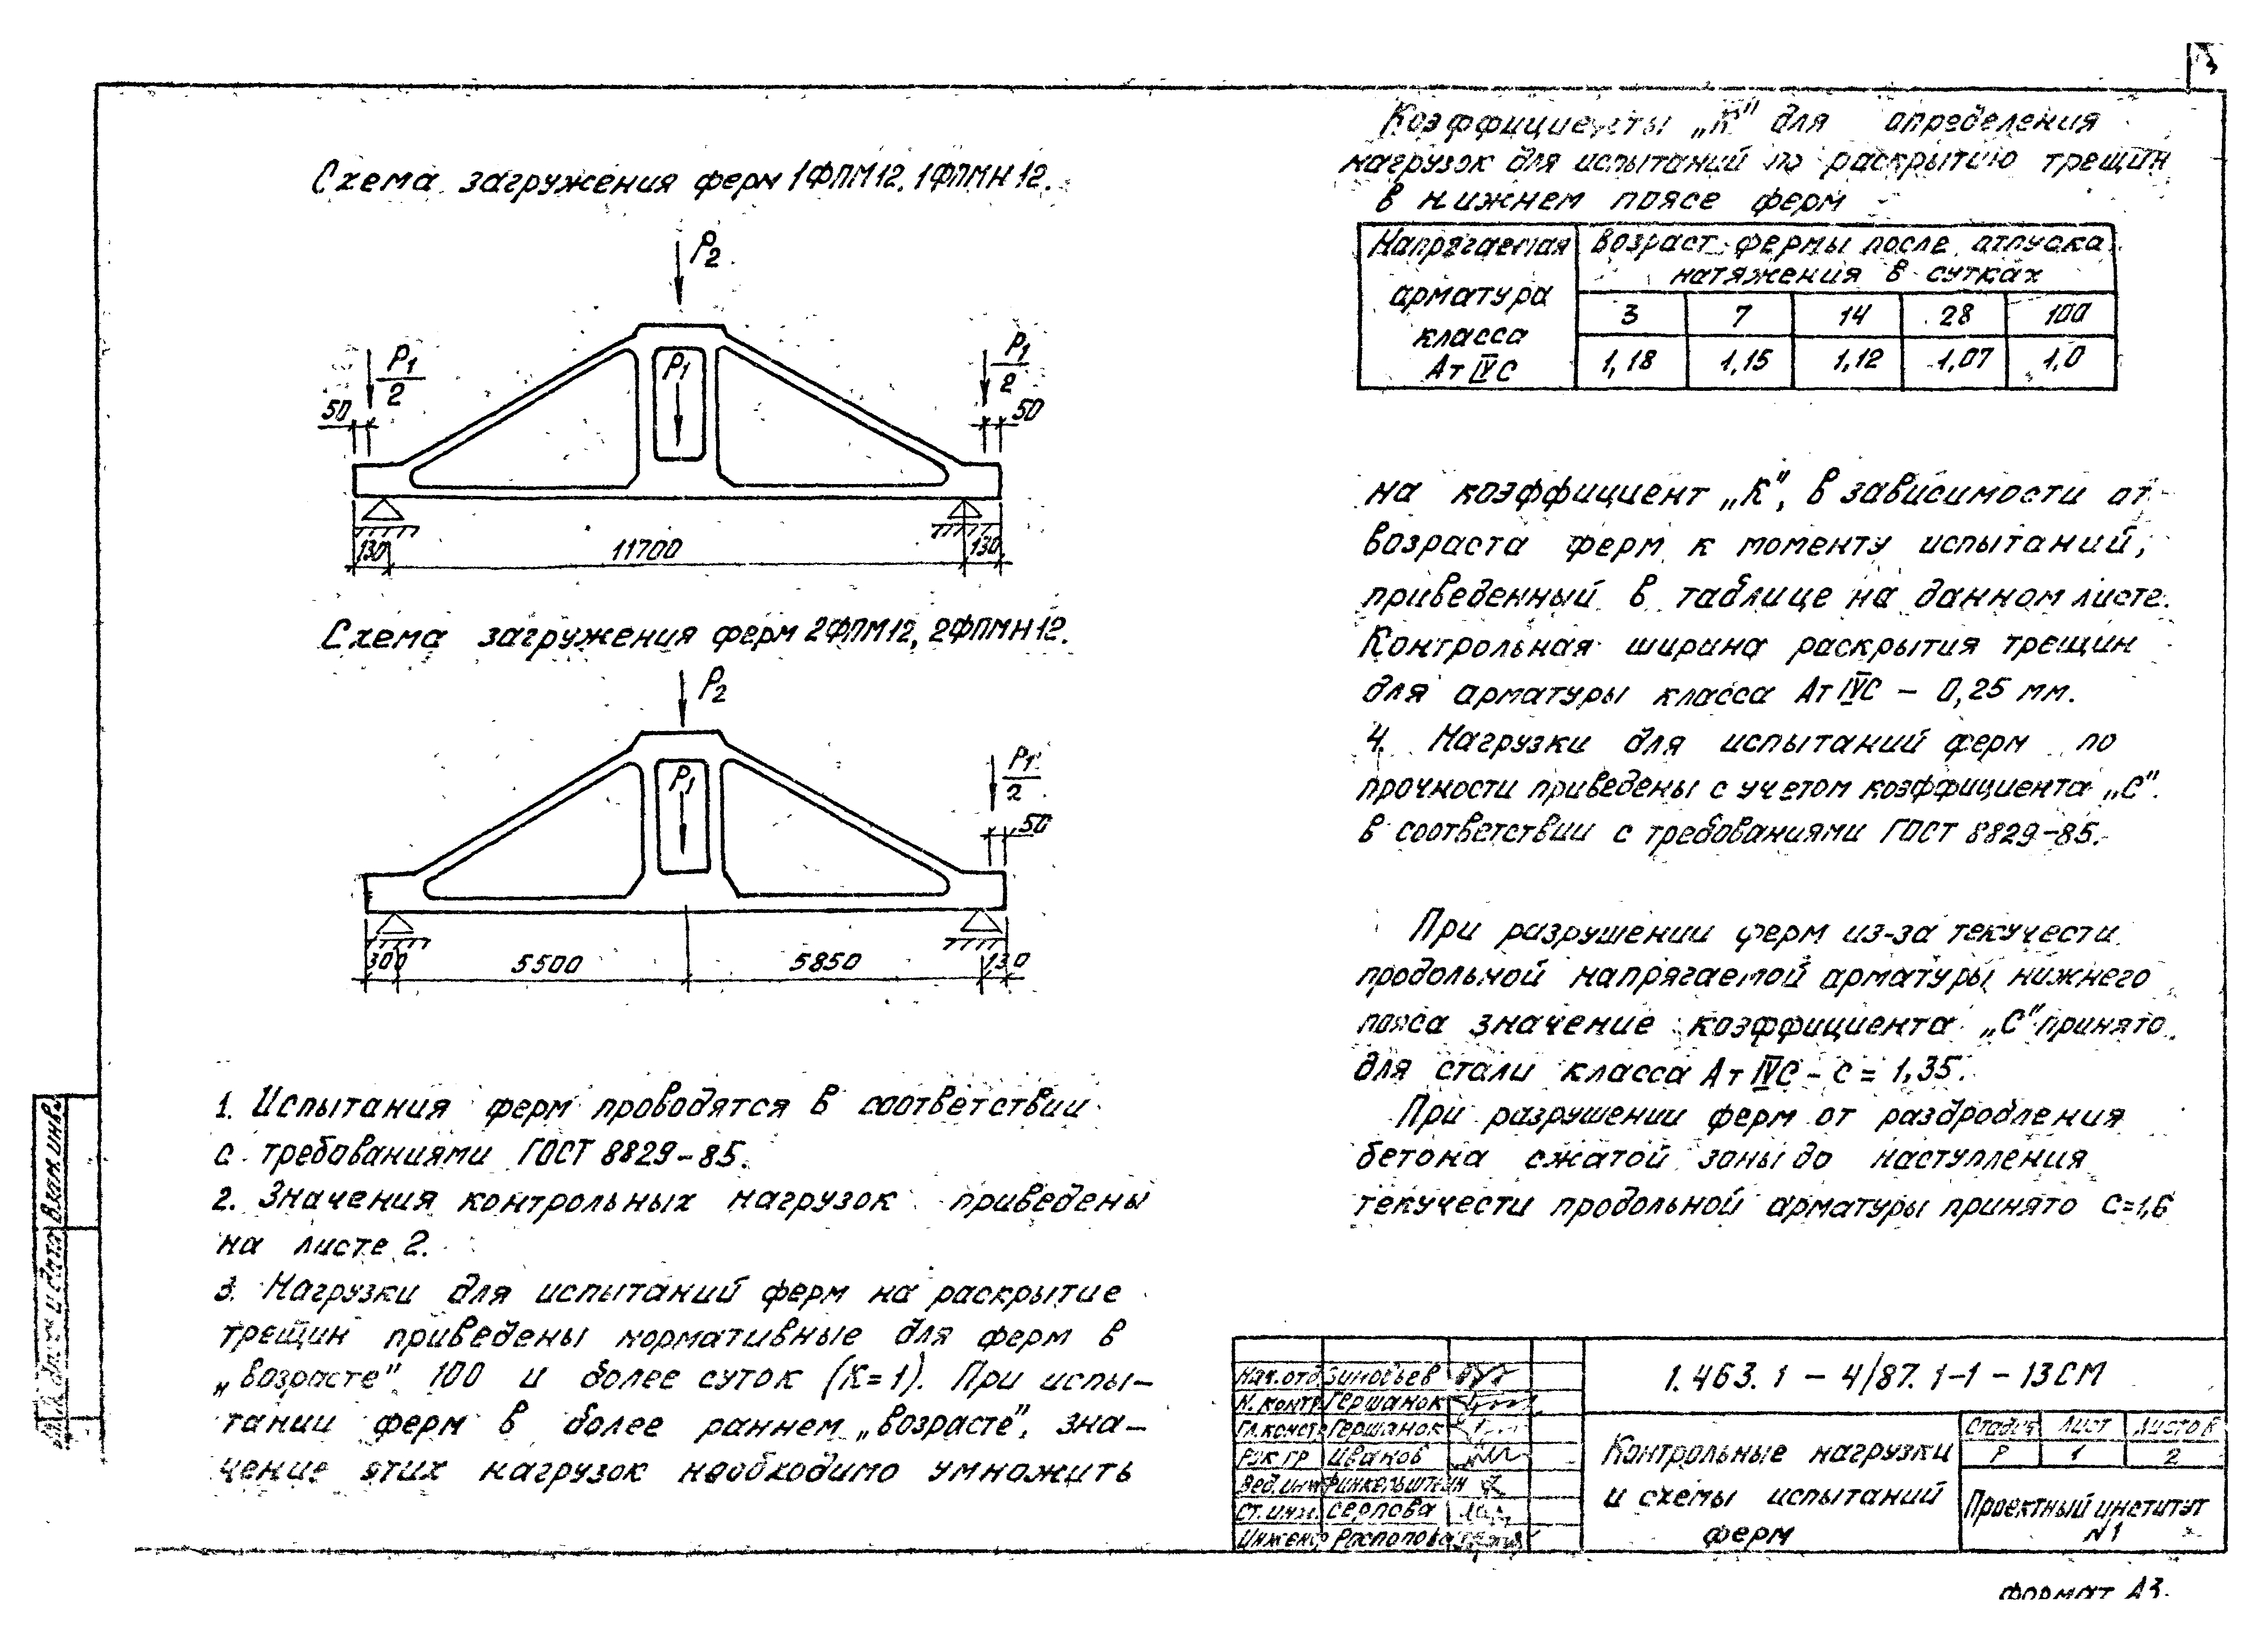 Схема загружения ферм 1ФПМ12, 1ФПМН12.
P2
P1
2
P1
P1
2
50
50
130
11700
130
Схема загружения ферм 2ФПМ12, 2ФПМН12.
P2
P1
P1
2
50
300
5500
5850
130
1. Испытания ферм проводятся в соответствии
с требованиями ГОСТ 8829-85.
2. Значения контрольных нагрузок приведены
на листе 2.
3. Нагрузки для испытаний ферм на раскрытие
трещин приведены нормативные для ферм в
„возрасте" 100 и более суток (К=1). При испы-
тании ферм в более раннем „возрасте", зна-
чение этих нагрузок необходимо умножить
Коэффициенты „К" для определения
нагрузок для испытаний по раскрытию трещин
в нижнем поясе ферм
Напрягаемая арматура класса Ат IVС
Возраст фермы после отпуска
натяжения в сутках
3 7 14 28 100
1,18 1,15 1,12 1,07 1,0
на коэффициент „К", в зависимости от
возраста ферм к моменту испытаний,
приведенный в таблице на данном листе.
Контрольная ширина раскрытия трещин
для арматуры класса Ат IVС – 0,25 мм.
4. Нагрузки для испытаний ферм по
прочности приведены с учетом коэффициента „С"
в соответствии с требованиями ГОСТ 8829-85.
При разрушении ферм из-за текучести
продольной напрягаемой арматуры нижнего
пояса значение коэффициента „С" принято
для стали класса Ат IVС – С = 1,35.
При разрушении ферм от раздробления
бетона сжатой зоны до наступления
текучести продольной арматуры принято С=1,6
Взам.инв.
и дата
Нач.отд. Зиновьев
Н.контр. Гершанок
Гл.констр Гершанок
Рук.гр Иванов
Вед.инж Финкельштейн
Ст.инж. Серпова
Инженер Распопова
1.463.1 – 4/87.1-1 – 13СМ
Контрольные нагрузки
и схемы испытаний
ферм
Стадия Лист Листов
Р 1 2
Проектный институт
№1
Формат А3.